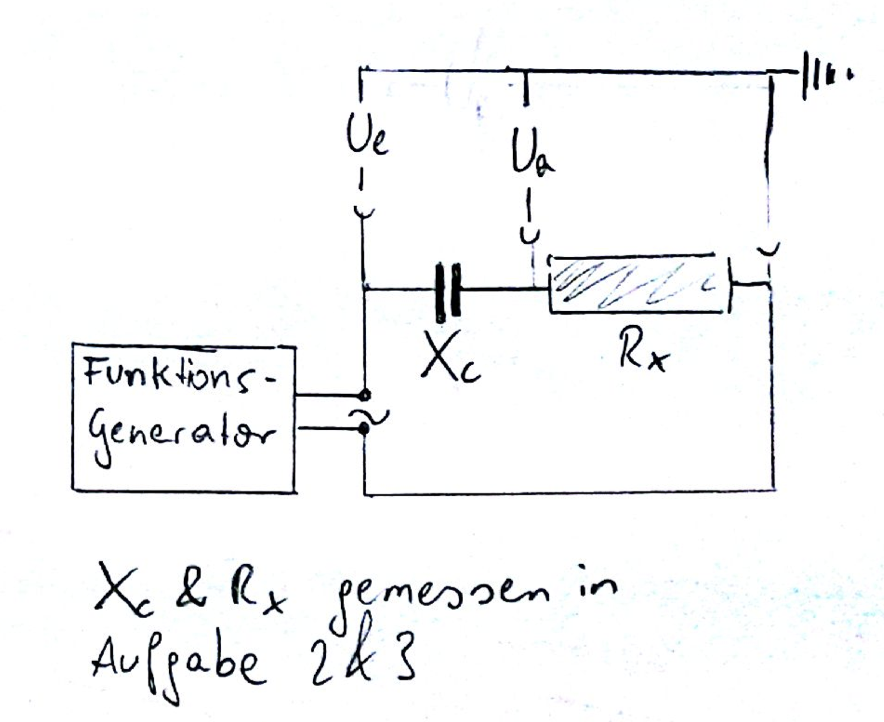 Ue
Ua
Xc
Rx
Funktions-
Generator
~
Xc & Rx gemessen in
Aufgabe 2 & 3